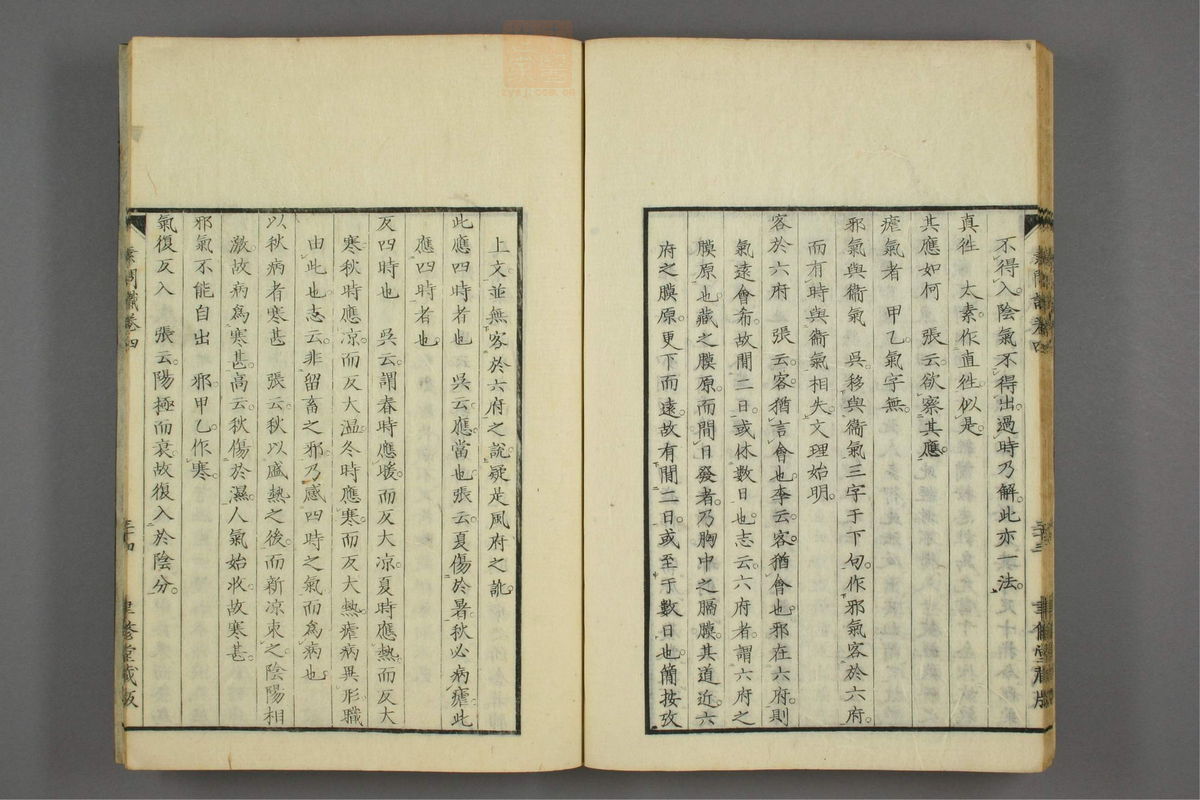 不得入陰氣不得出過時乃解此亦一法
真往 太素作直往似是
其應如何 張云欲察其應
瘧氣者 甲乙氣字無
邪氣與衞氣 吳移與衞氣三字于下句作邪氣客於六府
而有時與衞氣相失文理始明
客於六府 張云客猶言會也李云客猶會也邪在六府則
氣遠會希故間二日或休數日也志云六府者謂六府之
膜原也藏之膜原而間日發者乃胸中之膈膜其道近六
府之膜原更下而遠故有間二日或至于數日也簡按攷
上文並無客於六府之說疑是風府之訛
此應四時者也 吳云應當也張云夏傷於暑秋必病瘧此
應四時者也
反四時也 吳云謂春時應暖而反大凉夏時應熱而反大
寒秋時應凉而反大溫冬時應寒而反大熱瘧病異形職
由此也志云非留畜之邪乃感四時之氣而爲病也
以秋病者寒甚 張云秋以盛熱之後而新凉束之陰陽相
激故病爲寒甚高云秋傷於濕人氣始收故寒甚
邪氣不能自出 邪甲乙作寒
氣復反入 張云陽極而衰故復入於陰分
素問識卷四
三十四
聿修堂藏版